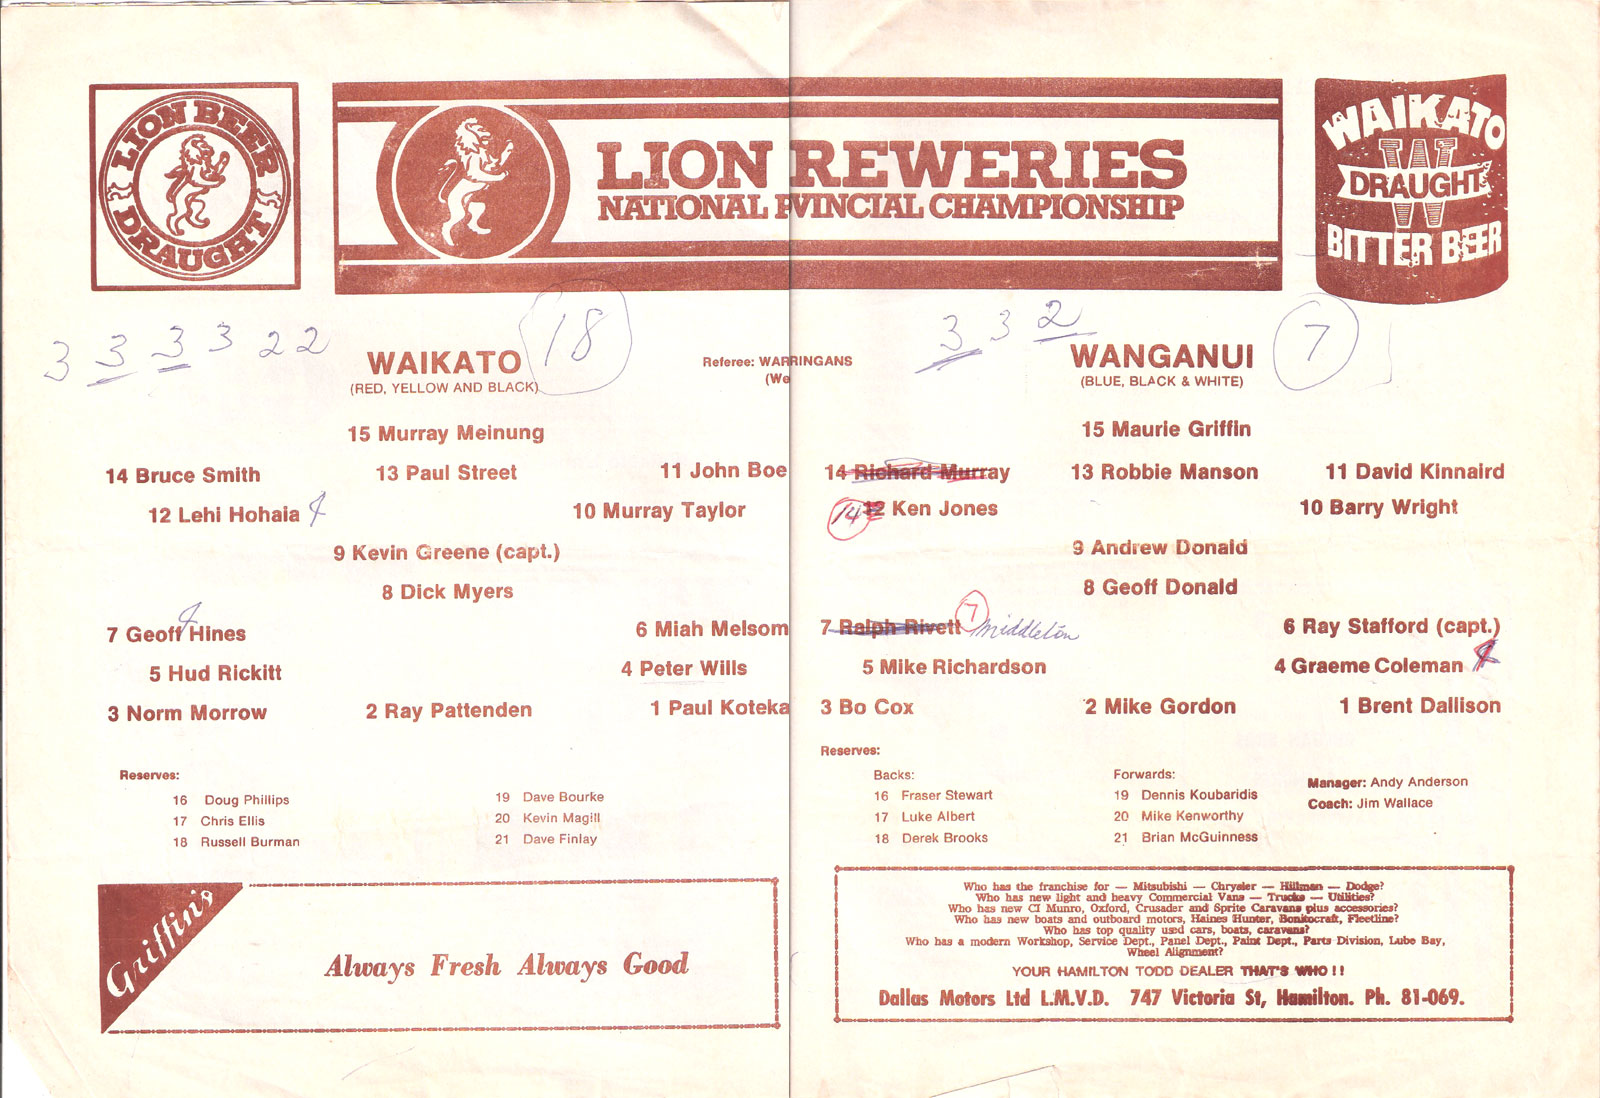 LION BEER
DRAUGHT
LION REWERIES
NATIONAL PVINCIAL CHAMPIONSHIP
WAIKATO
W
DRAUGHT
BITTER BEER
3 3 3 3 2 2
18
3 3 2
7
WAIKATO
(RED, YELLOW AND BLACK)
Referee: WARRINGANS
(We
WANGANUI
(BLUE, BLACK & WHITE)
15 Murray Meinung
14 Bruce Smith 13 Paul Street 11 John Boe
12 Lehi Hohaia 10 Murray Taylor
9 Kevin Greene (capt.)
8 Dick Myers
7 Geoff Hines 6 Miah Melsom
5 Hud Rickitt 4 Peter Wills
3 Norm Morrow 2 Ray Pattenden 1 Paul Koteka
Reserves:
16 Doug Phillips 19 Dave Bourke
17 Chris Ellis 20 Kevin Magill
18 Russell Burman 21 Dave Finlay
15 Maurie Griffin
14 Richard Murray 13 Robbie Manson 11 David Kinnaird
14 12 Ken Jones 10 Barry Wright
9 Andrew Donald
8 Geoff Donald
7 Ralph Rivett 7 Middleton 6 Ray Stafford (capt.)
5 Mike Richardson 4 Graeme Coleman
3 Bo Cox 2 Mike Gordon 1 Brent Dallison
Reserves:
Backs: Forwards:
16 Fraser Stewart 19 Dennis Koubaridis
17 Luke Albert 20 Mike Kenworthy
18 Derek Brooks 21 Brian McGuinness
Manager: Andy Anderson
Coach: Jim Wallace
Griffin's
Always Fresh Always Good
Who has the franchise for — Mitsubishi — Chrysler — Hillman — Dodge?
Who has new light and heavy Commercial Vans — Trucks — Utilities?
Who has new CI Munro, Oxford, Crusader and Sprite Caravans plus accessories?
Who has new boats and outboard motors, Haines Hunter, Bonitocraft, Fleetline?
Who has top quality used cars, boats, caravans?
Who has a modern Workshop, Service Dept., Panel Dept., Paint Dept., Parts Division, Lube Bay,
Wheel Alignment?
YOUR HAMILTON TODD DEALER THAT'S WHO !!
Dallas Motors Ltd L.M.V.D. 747 Victoria St, Hamilton. Ph. 81-069.